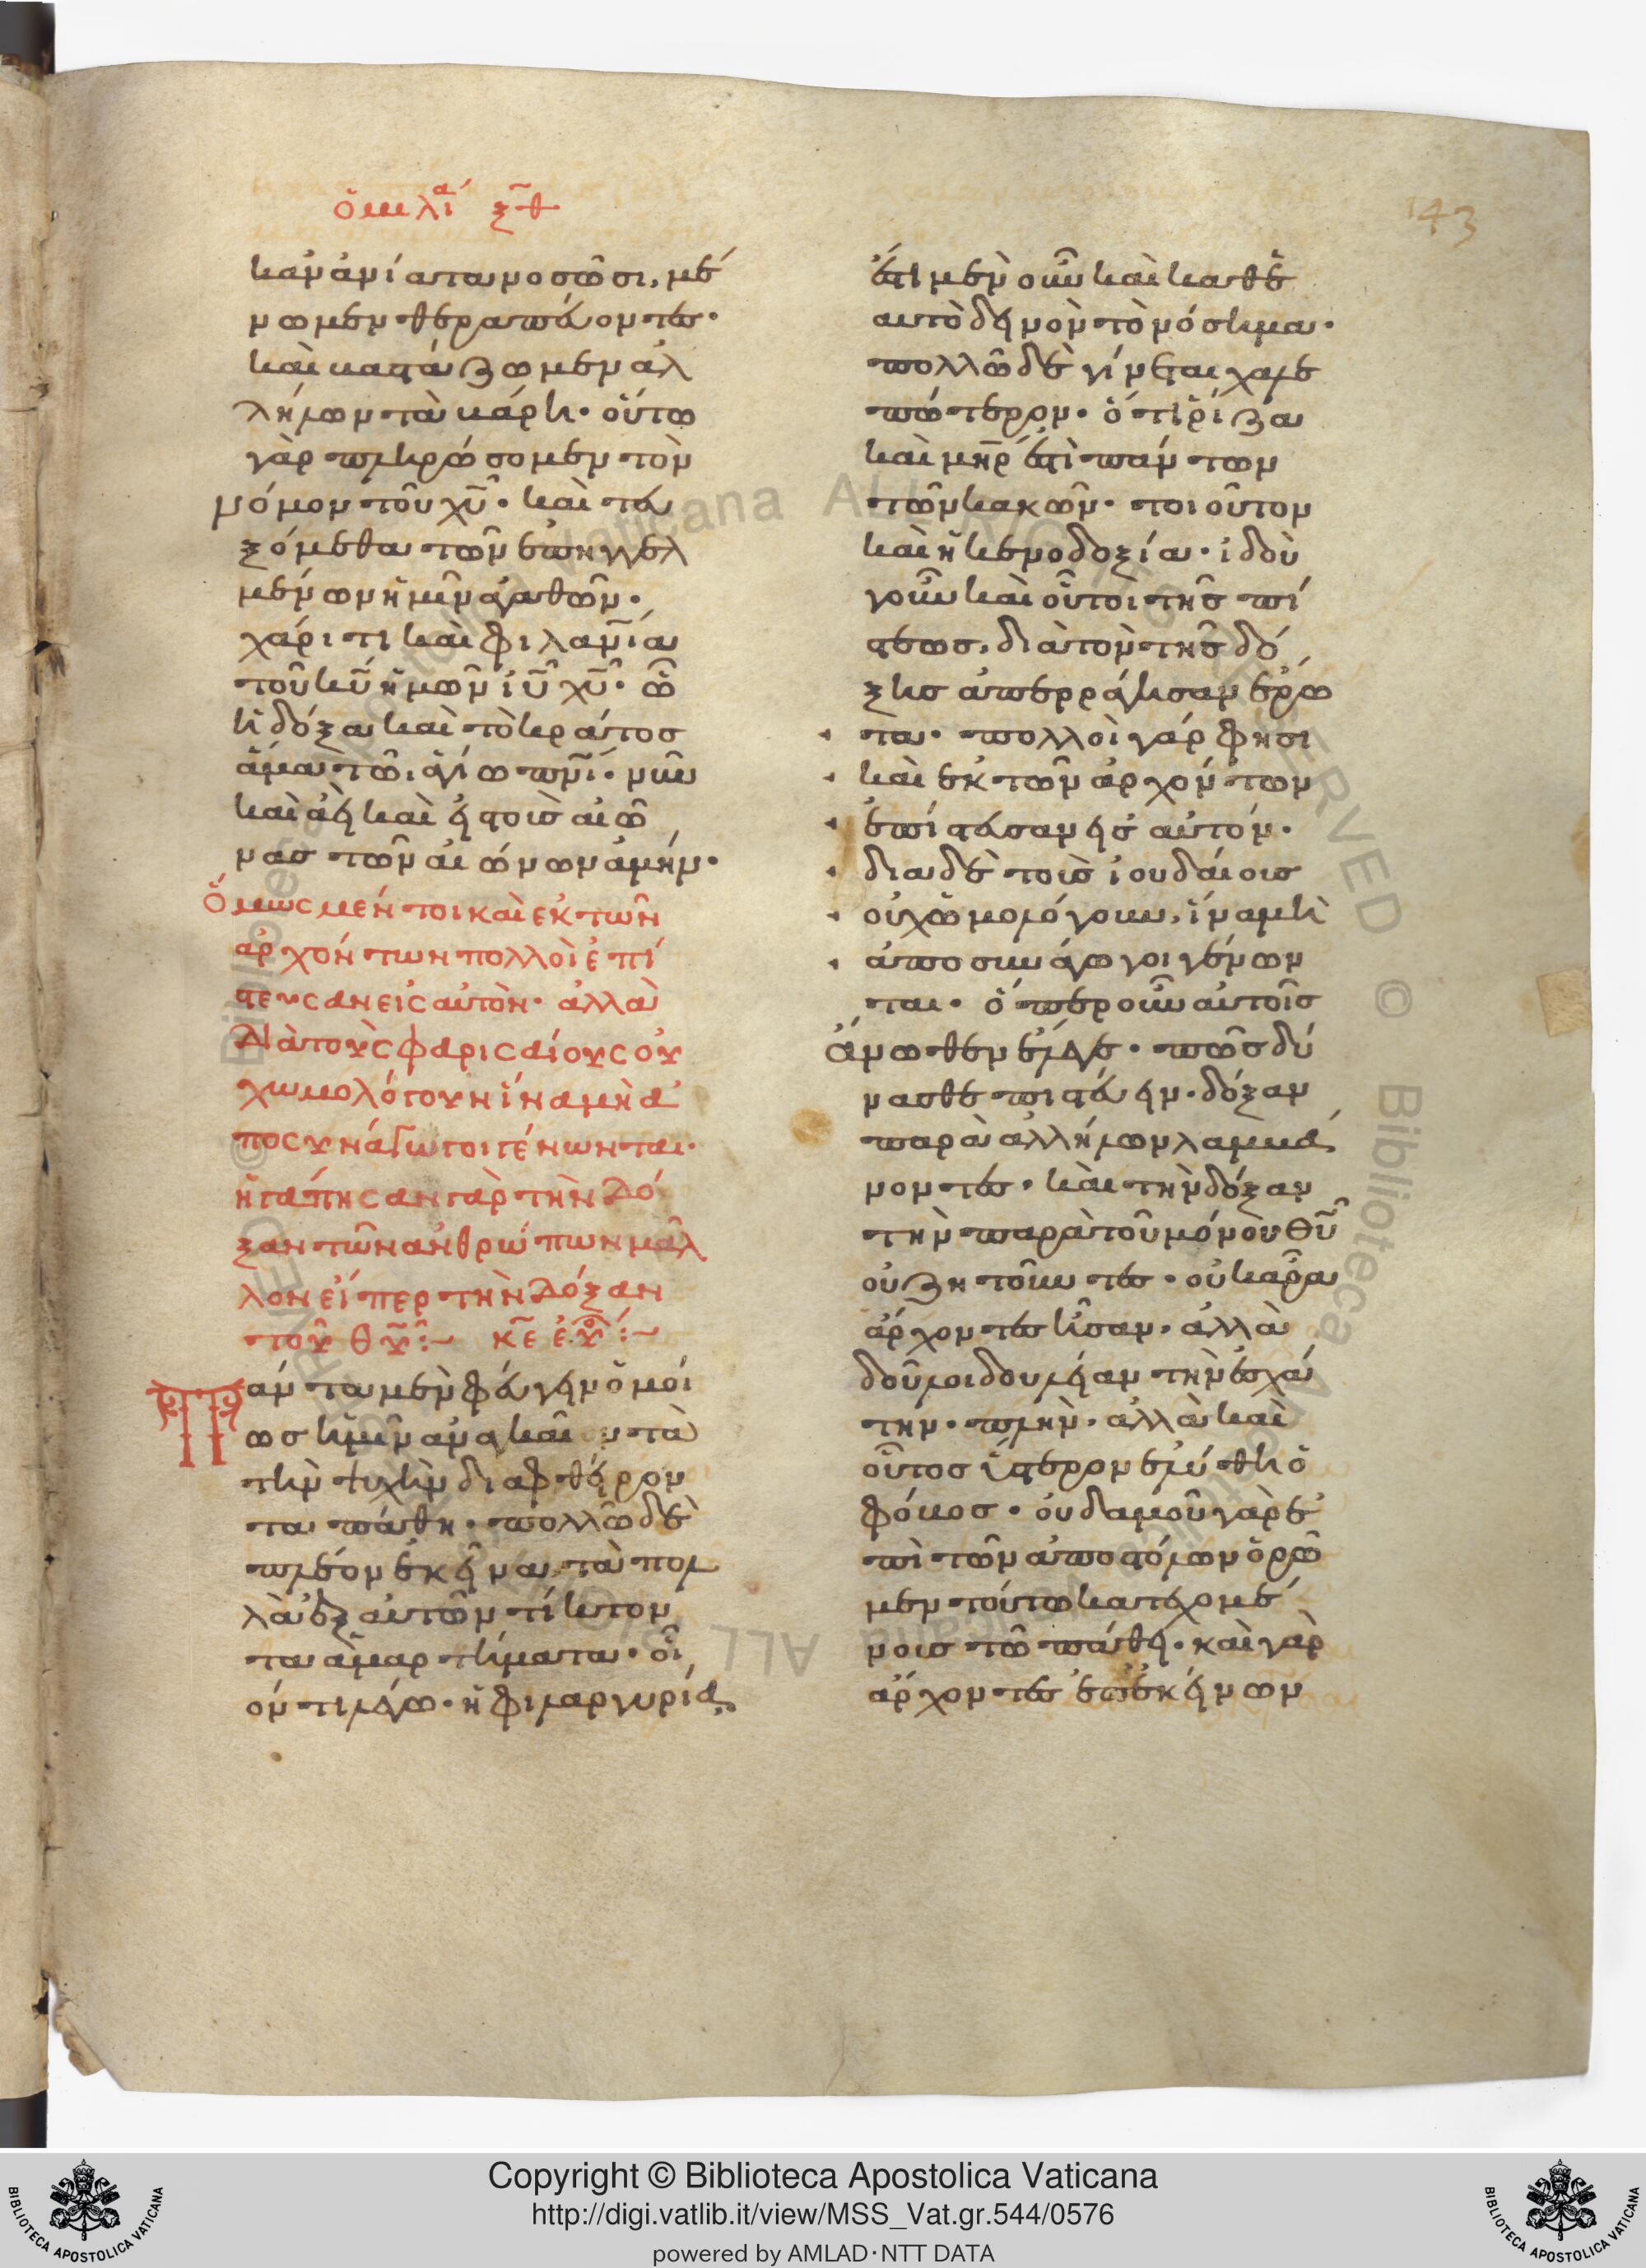 ὁμιλί α ξθ
143
κἂν ἀνίατα νοσῶσι, μέ
νωμεν θεραπεύοντες·
καὶ βαστάζωμεν ἀλ
λήλων τὰ βάρη· οὕτω
γὰρ πληρώσομεν τὸν
νόμον τοῦ χυ· καὶ τευ
ξόμεθα τῶν ἐπηγγελ
μένων ἡμῖν ἀγαθῶν·
χάριτι καὶ φιλανίαι
τοῦ κυ ἡμῶν ιυ χυ· ὧ
ἡ δόξα καὶ τὸ κράτος
ἅμα τῶ ἁγίω πνι· νῦν
καὶ ἀεὶ καὶ εἰς τοὺς αἰῶ
νας τῶν αἰώνων ἀμήν·
Ὅμως μέν τοι καὶ ἐκ τῶν
ἀρχόντων πολλοὶ ἐπί
στευσαν εἰς αὐτὸν· ἀλλὰ
διὰ τοὺς φαρισαίους οὐ
χ ὡμολόγουν ἵνα μὴ ἀ
ποσυνάγωγοι γένωνται·
ἠγάπησαν γὰρ τὴν δό
ξαν τῶν ἀνθρώπων μᾶλ
λον εἴπερ τὴν δόξαν
τοῦ θυ:~
Πάντα μὲν φεύγειν ὁμοί
ως ἡμῖν ἀναγκαῖον τὰ
τὴν ψυχὴν διαφθείρον
τα πάθη· πολλῶ δὲ
πλέον ἐκεῖνα, τὰ πολ
λὰ ἐξ αὐτῶν τίκτον
τα ἁμαρτήματα· οἷ
ον τι λέγω· ἡ φιλαργυρία
ἐστὶ μὲν οὖν καὶ καθ' ἑ
αυτὸ δεινὸν τὸ νόσημα·
πολλῶ δὲ γίνεται χαλε
πώτερον· ὅτι ῥίζα
καὶ μηρ ἐστὶ πάντων
τῶν κακῶν· τοιοῦτον
καὶ ἡ κενοδοξία· ἰδοὺ
γοῦν καὶ οὗτοι τῆς πί
στεως, διὰ τὸν τῆς δό
ξης ἀπερράγησαν ἔρω
τα· πολλοὶ γάρ φησι
καὶ ἐκ τῶν ἀρχόντων
ἐπίστευσαν εἰς αὐτόν·
διὰ δὲ τοὺς ἰουδαίους
οὐχ ὡμολόγουν, ἵνα μὴ
ἀποσυνάγωγοι γένων
ται· ὅπερ οὖν αὐτοῖς
ἄνωθεν ἔλεγε· πῶς δύ
νασθε πιστεύειν· δόξαν
παρὰ ἀλλήλων λαμβά
νοντες· καὶ τὴν δόξαν
τὴν παρὰ τοῦ μόνου θυ
οὐ ζητοῦντες· οὐκ ἄρα
ἄρχοντες ἦσαν· ἀλλὰ
δοῦλοι δουλείαν τὴν ἐσχά
την· πλὴν· ἀλλὰ καὶ
οὗτος ὕστερον ἐλύθη ὁ
φόβος· οὐδαμοῦ γὰρ ἐ
πὶ τῶν ἀποστόλων ὁρῶ
μεν τούτω κατεχομέ
νους τῶ πάθει· καὶ γὰρ
ἄρχοντες ἐπ' ἐκείνων
Copyright © Biblioteca Apostolica Vaticana
http://digi.vatlib.it/view/MSS_Vat.gr.544/0576
powered by AMLAD·NTT DATA